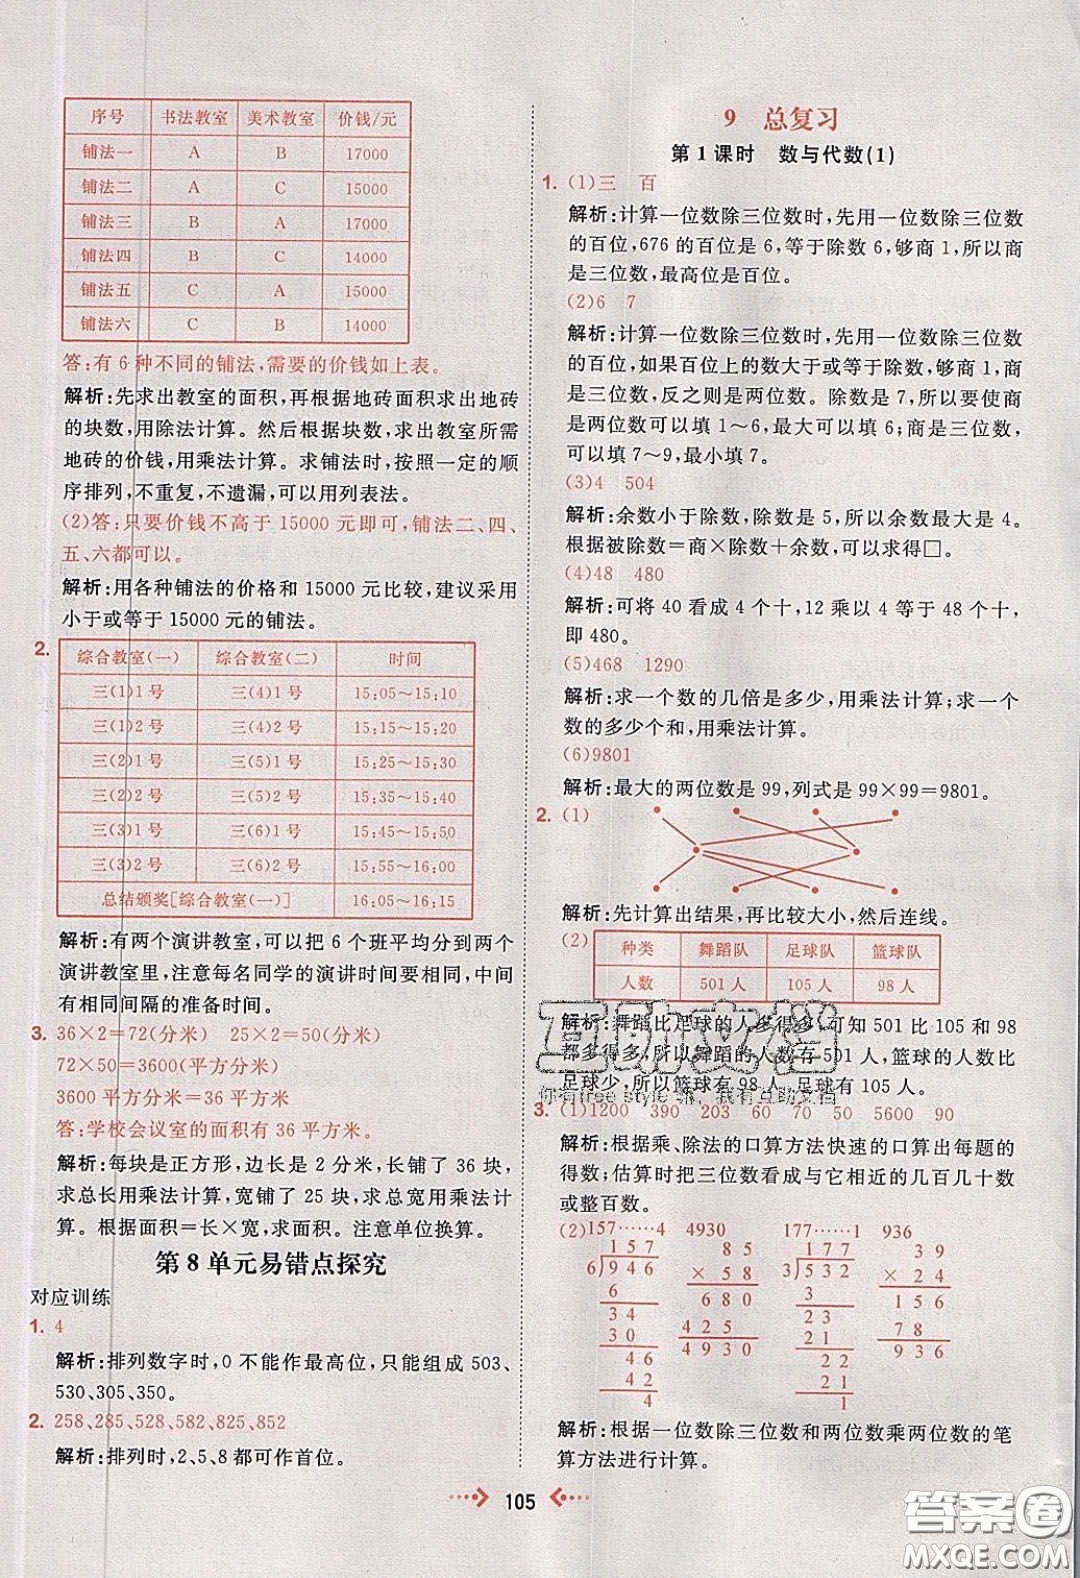 序号 书法教室 美术教室 价钱/元
铺法一 A B 17000
铺法二 A C 15000
铺法三 B A 17000
铺法四 B C 14000
铺法五 C A 15000
铺法六 C B 14000
答:有6种不同的铺法,需要的价钱如上表。
解析:先求出教室的面积,再根据地砖面积求出地砖
的块数,用除法计算。然后根据块数,求出教室所需
地砖的价钱,用乘法计算。求铺法时,按照一定的顺
序排列,不重复,不遗漏,可以用列表法。
(2)答:只要价钱不高于15000元即可,铺法二、四、
五、六都可以。
解析:用各种铺法的价格和15000元比较,建议采用
小于或等于15000元的铺法。
2.
综合教室(一) 综合教室(二) 时间
三(1)1号 三(4)1号 15:05~15:10
三(1)2号 三(4)2号 15:15~15:20
三(2)1号 三(5)1号 15:25~15:30
三(2)2号 三(5)2号 15:35~15:40
三(3)1号 三(6)1号 15:45~15:50
三(3)2号 三(6)2号 15:55~16:00
总结颁奖[综合教室(一)] 16:05~16:15
解析:有两个演讲教室,可以把6个班平均分到两个
演讲教室里,注意每名同学的演讲时间要相同,中间
有相同间隔的准备时间。
3. 36×2=72(分米) 25×2=50(分米)
72×50=3600(平方分米)
3600平方分米=36平方米
答:学校会议室的面积有36平方米。
解析:每块是正方形,边长是2分米,长铺了36块,
求总长用乘法计算,宽铺了25块,求总宽用乘法计
算。根据面积=长×宽,求面积。注意单位换算。
第8单元易错点探究
对应训练
1. 4
解析:排列数字时,0不能作最高位,只能组成503、
530、305、350。
2. 258、285、528、582、825、852
解析:排列时,2、5、8都可作首位。
9 总复习
第1课时 数与代数(1)
1. (1)三 百
解析:计算一位数除三位数时,先用一位数除三位数
的百位,676的百位是6,等于除数6,够商1,所以商
是三位数,最高位是百位。
(2)6 7
解析:计算一位数除三位数时,先用一位数除三位数
的百位,如果百位上的数大于或等于除数,够商1,商
是三位数,反之则是两位数。除数是7,所以要使商
是两位数可以填1~6,最大可以填6;商是三位数,
可以填7~9,最小填7。
(3)4 504
解析:余数小于除数,除数是5,所以余数最大是4。
根据被除数=商×除数+余数,可以求得□。
(4)48 480
解析:可将40看成4个十,12乘以4等于48个十,
即480。
(5)468 1290
解析:求一个数的几倍是多少,用乘法计算;求一个
数的多少个和,用乘法计算。
(6)9801
解析:最大的两位数是99,列式是99×99=9801。
2. (1)
解析:先计算出结果,再比较大小,然后连线。
(2)
种类 舞蹈队 足球队 篮球队
人数 501人 105人 98人
解析:舞蹈比足球的人多得多,可知501比105和98
都多得多,所以舞蹈的人数有501人,篮球的人数比
足球少,所以篮球有98人,足球有105人。
互助文档
3. (1)1200 390 203 60 70 50 5600 90
解析:根据乘、除法的口算方法快速的口算出每题的
得数;估算时把三位数看成与它相近的几百几十数
或整百数。
(2)157……4 4930 177……1 936
157 85 177 39
6)946 ×58 3)532 ×24
6 680 3 156
34 425 23 78
30 4930 21 936
46 22
42 21
4 1
解析:根据一位数除三位数和两位数乘两位数的笔
算方法进行计算。
105
答案圈
MXQE.COM